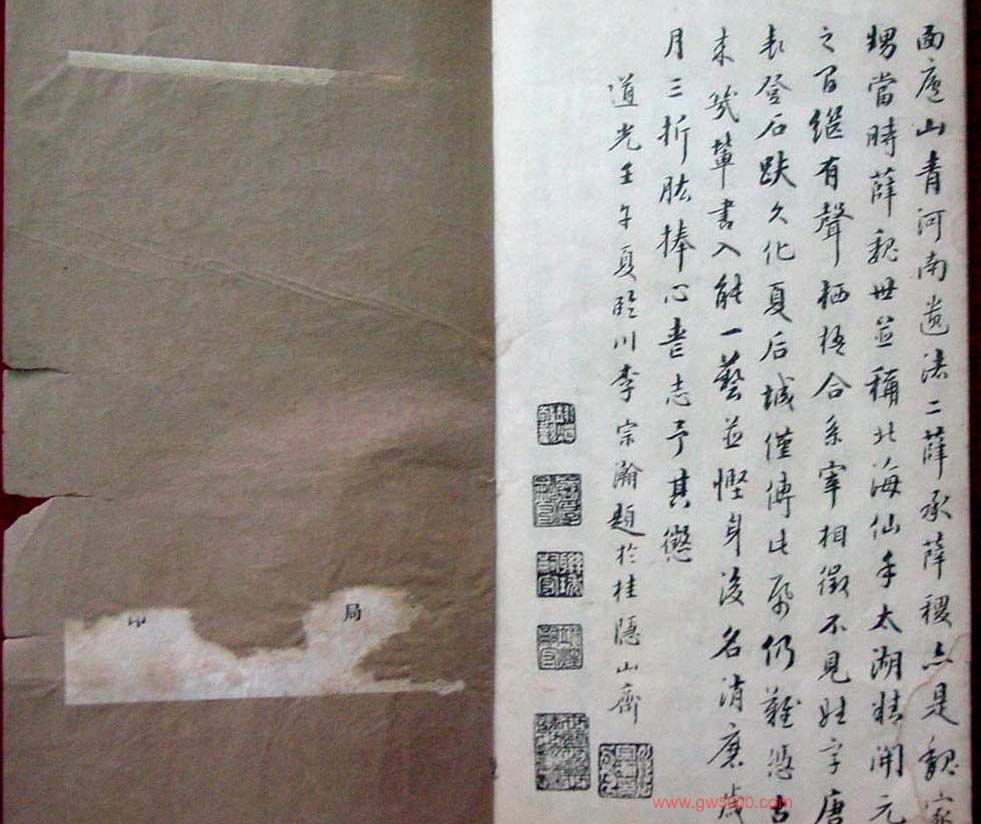 面廬山青河南遺法二薛承薛稷亦是魏家
甥當時薛魏世並稱北海仙手太湖精開元
之間繼有聲栖梧合系宰相徵不見姓字唐
表登石趺久化夏后城僅傳此帋仍難憑古
来幾輩書入能一藝並慳身後名消磨歲
月三折肱捧心書志予其懲
道光壬午夏臨川李宗瀚題於桂隱山齋
局
印
www.gw5000.com